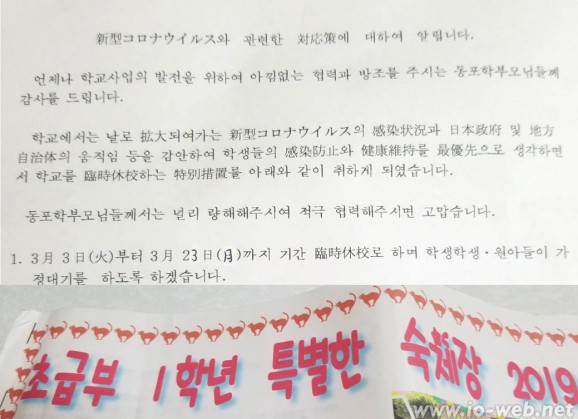 新型コロナウイルス와 관련한 対応策에 대하여 알립니다.
언제나 학교사업의 발전을 위하여 아낌없는 협력과 방조를 주시는 동포학부모님들께
감사를 드립니다.
학교에서는 날로 拡大되여가는 新型コロナウイルス의 感染状況과 日本政府 및 地方
自治体의 움직임 등을 감안하여 학생들의 感染防止와 健康維持를 最優先으로 생각하면
서 학교를 臨時休校하는 特別措置를 아래와 같이 취하게 되였습니다.
동포학부모님들께서는 널리 량해해주시여 적극 협력해주시면 고맙습니다.
1. 3月 3日(火)부터 3月 23日(月)까지 기간 臨時休校로 하며 학생학생・원아들이 가
정대기를 하도록 하겠습니다.
초급부 1학년 특별한 숙제장 2019
www.io-web.net